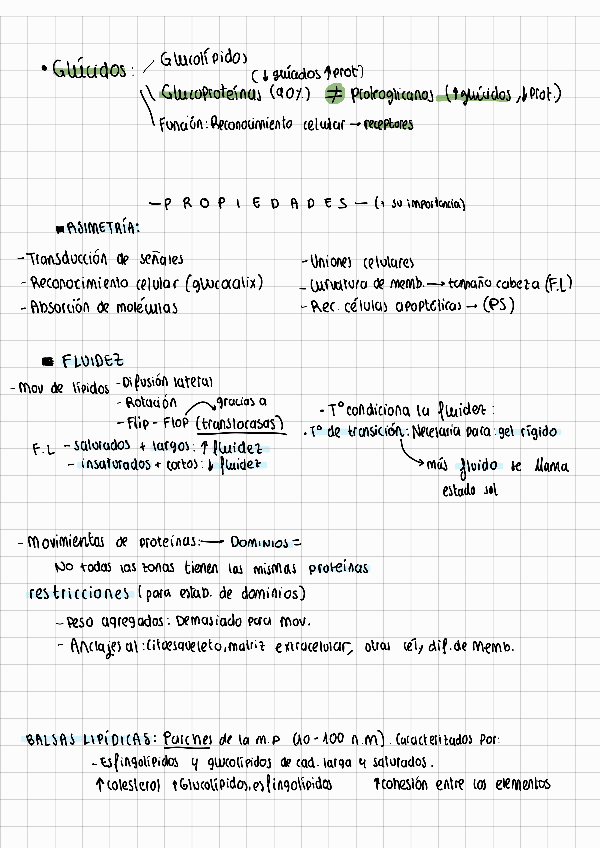 • Glúcidos: Glucolípidos
(↓ glúcidos ↑ prot)
Glucoproteínas (90%) ≠ Proteoglicanos (↑ glúcidos, ↓ Prot.)
Función: Reconocimiento celular → receptores
— P R O P I E D A D E S — (y su importancia)
■ ASIMETRÍA:
- Transducción de señales
- Reconocimiento celular (glucocalix)
- Absorción de moléculas
- Uniones celulares
- Curvatura de memb. → tamaño cabeza (F.L)
- Rec. células apoptóticas → (PS)
■ FLUIDEZ
- Mov de lípidos - Difusión lateral
- Rotación gracias a
- Flip - Flop (translocasas)
F.L - saturados + largos: ↑ fluidez
- insaturados + cortos: ↓ fluidez
- Tº condiciona la fluidez:
· Tº de transición: Necesaria para: gel rígido
→ más fluido se llama
estado sol
- Movimientos de proteínas: — DOMINIOS =
No todas las zonas tienen las mismas proteínas
restricciones (para estab. de dominios)
- Peso agregados: Demasiado para mov.
- Anclajes al: citoesqueleto, matriz extracelular, otras cél, dif. de Memb.
BALSAS LIPÍDICAS: Parches de la m.p (10 - 100 n.m). Caracterizados por:
- Esfingolípidos y glucolípidos de cad. larga y saturados.
↑ colesterol ↑ Glucolípidos, esfingolípidos ↑ cohesión entre los elementos